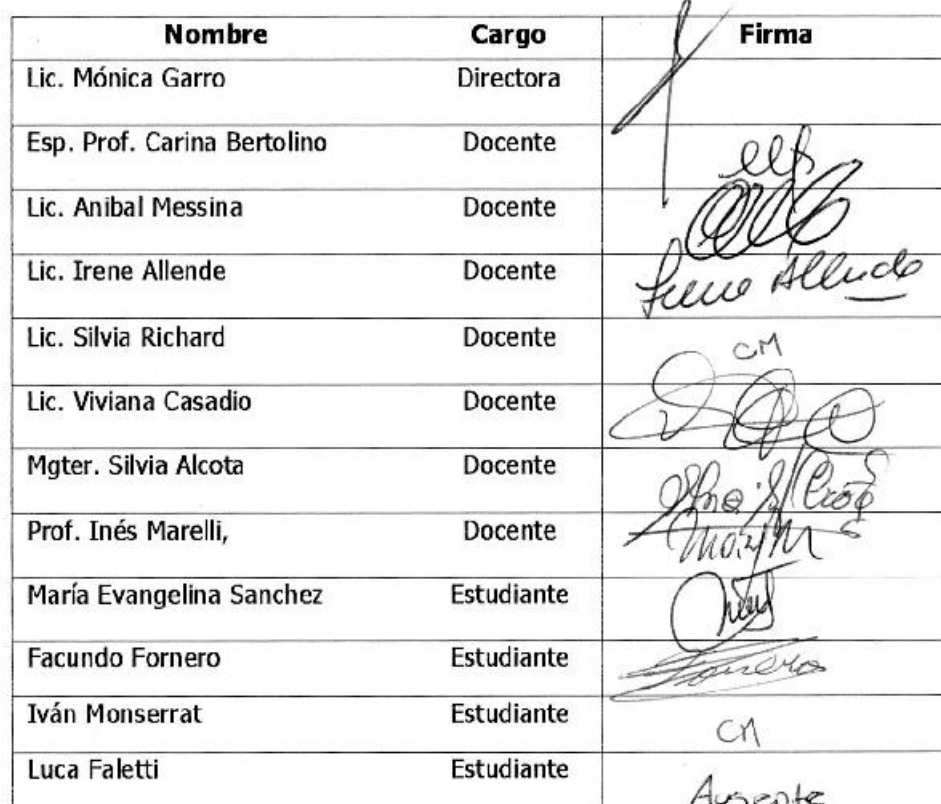 Nombre Cargo Firma
Lic. Mónica Garro Directora
Esp. Prof. Carina Bertolino Docente
Lic. Anibal Messina Docente
Lic. Irene Allende Docente Irene Allende
Lic. Silvia Richard Docente CM
Lic. Viviana Casadio Docente
Mgter. Silvia Alcota Docente
Prof. Inés Marelli, Docente
María Evangelina Sanchez Estudiante
Facundo Fornero Estudiante Fornero
Iván Monserrat Estudiante CM
Luca Faletti Estudiante Ausente